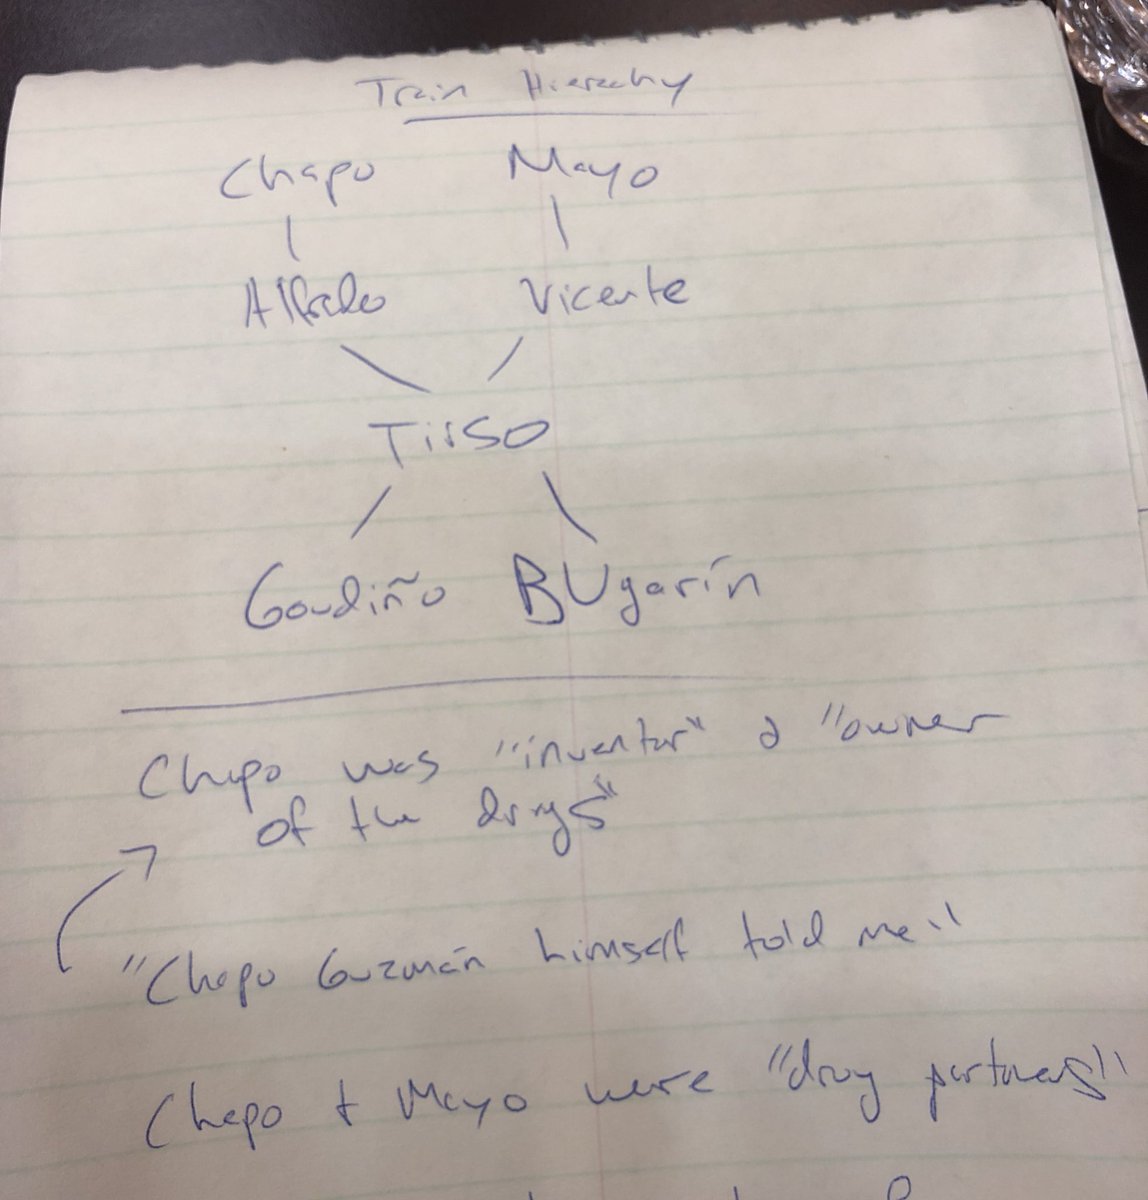 Train Hierachy
Chapo Mayo
Alfredo Vicente
Tirso
Gaudiño BUgarín
Chapo was "inventor" & "owner
of the drugs"
"Chapo Guzmán himself told me"
Chapo + Mayo were "drug partners"